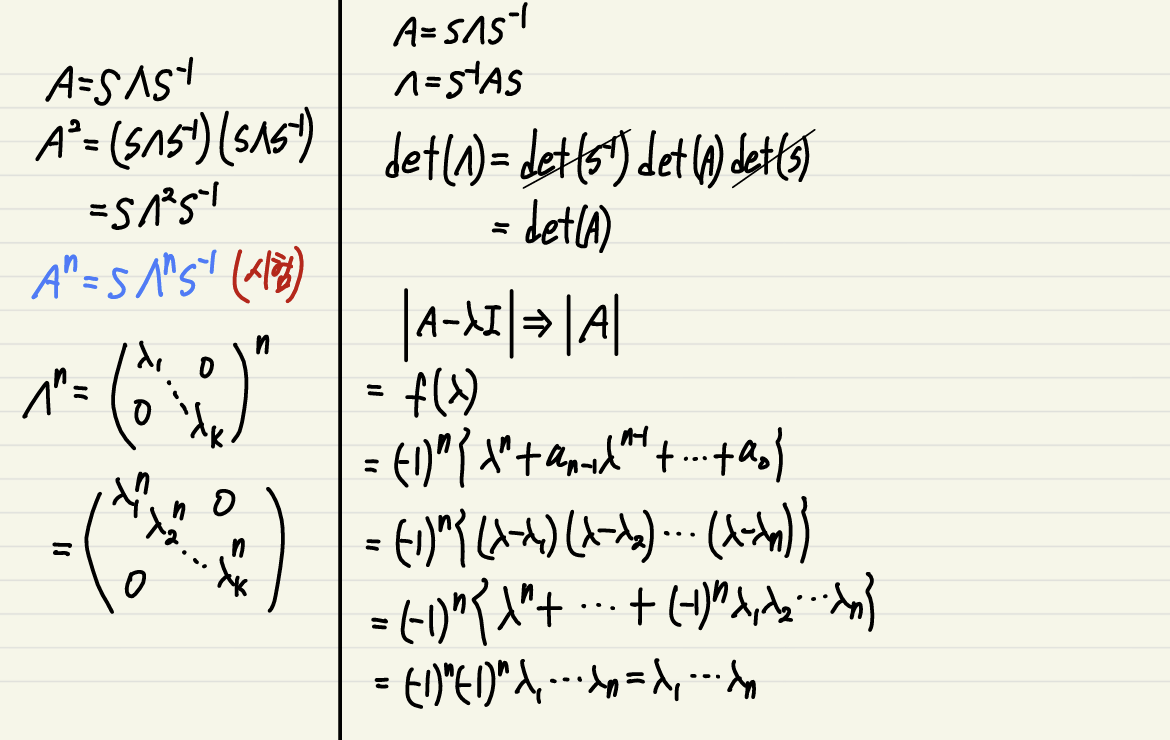 A = SΛS⁻¹
A² = (SΛS⁻¹)(SΛS⁻¹)
= SΛ²S⁻¹
Aⁿ = SΛⁿS⁻¹ (시험)
Λⁿ = (λ₁ 0 ⋱ 0 λₖ)ⁿ
= (λ₁ⁿ λ₂ⁿ 0 ⋱ 0 λₖⁿ)
A = SΛS⁻¹
Λ = S⁻¹AS
det(Λ) = det(S⁻¹) det(A) det(S)
= det(A)
|A - λI| ⇒ |A|
= f(λ)
= (-1)ⁿ{λⁿ + aₙ₋₁λⁿ⁻¹ + ⋯ + a₀}
= (-1)ⁿ{(λ-λ₁)(λ-λ₂)⋯(λ-λₙ)}
= (-1)ⁿ{λⁿ + ⋯ + (-1)ⁿλ₁λ₂⋯λₙ}
= (-1)ⁿ(-1)ⁿλ₁⋯λₙ = λ₁⋯λₙ